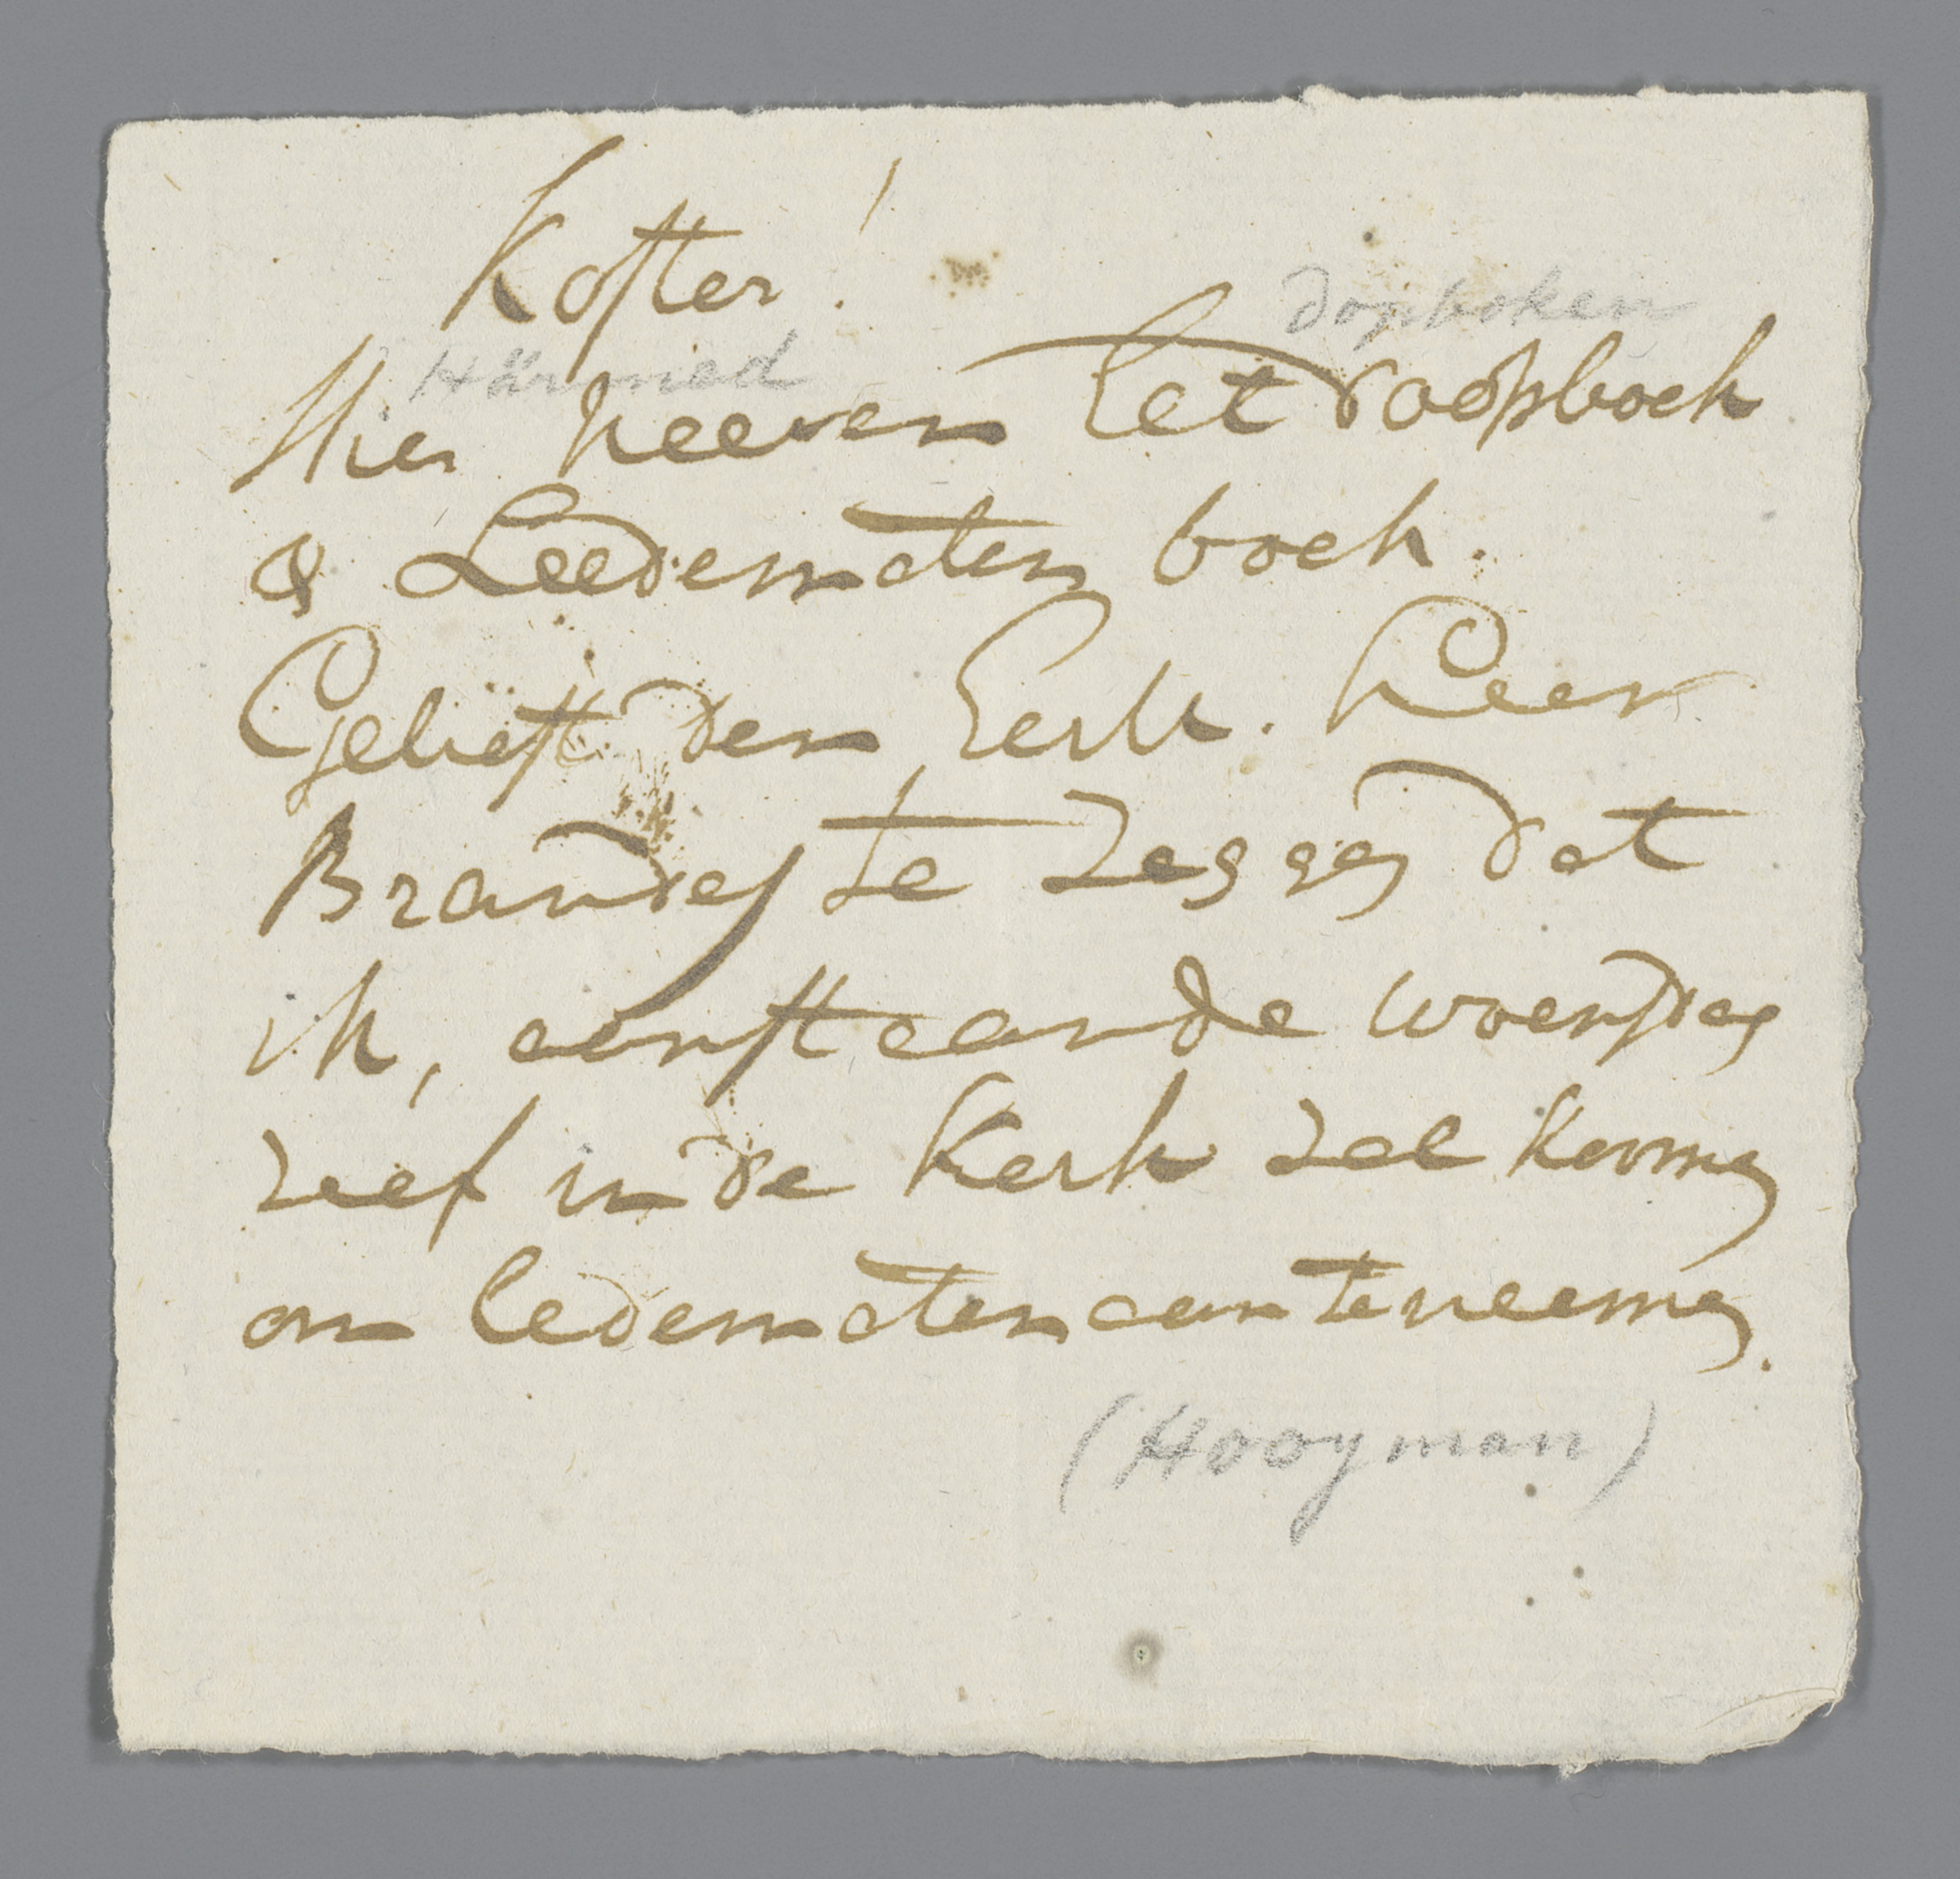 Koster!
dopboken
Härmed
Hier neeven het doopboek
& Leedematen boek.
Gelieft den Eerw. Heer
Brandes te zeggen dat
ik, aanstaande woensdag
zelf in de Kerk zal koomen
om ledematen aan te neemen.
(Hooyman)